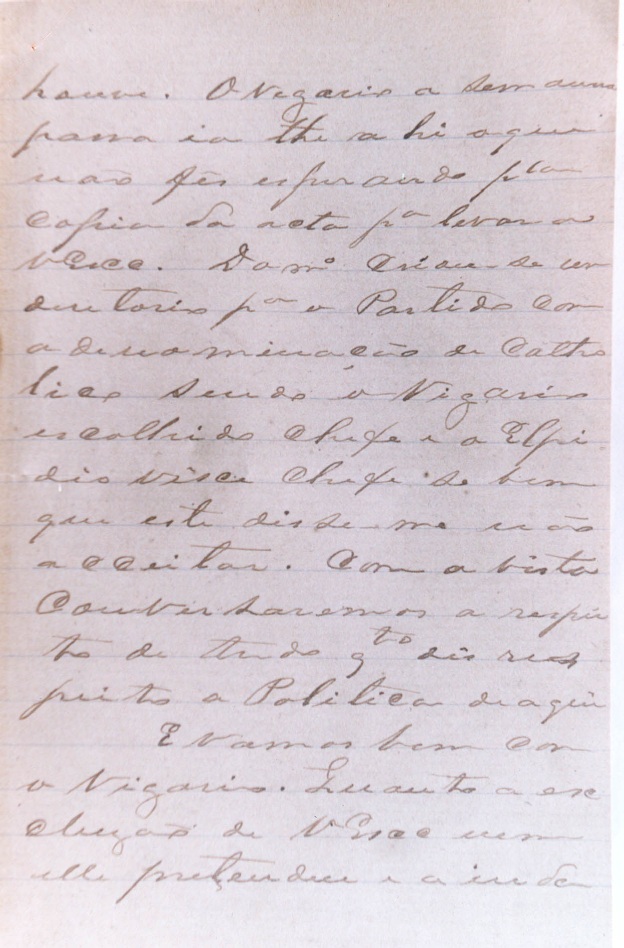 houve. O Vigario a semana
passa ia lhe a hi o que
não fês esperando pla
copia da acta pa levar a
VExce. Do mo Criou-se um
deretorio pa o Partido com
a denominação de Catho
lico sendo o Vigario
escolhido chefe e o Elpi
dio visce chefe se bem
que este disse me não
acceitar. Com a vista
Conversaremos a respei
to de tudo qto dis res
peito a Politica de aqui
E vamos bem com
o Vigario. Quanto a ex
clusão de VExce nem
elle pretendeu e ainda